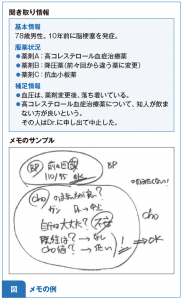 聞き取り情報
基本情報
78歳男性。10年前に脳梗塞を発症。
服薬状況
●薬剤A：高コレステロール血症治療薬
●薬剤B：降圧薬（前々回から違う薬に変更）
●薬剤C：抗血小板薬
補足情報
●血圧は、薬剤変更後、落ち着いている。
●高コレステロール血症治療薬について、知人が飲ま
ない方が良いという。
その人はDr.に申し出て中止した。
メモのサンプル
BP 前々回 BP
110/95 OK
Cho
ガン Dr.→中止
自分は大丈夫？ 不安 Cho
既往は？→なし
Cho値？→ ! ⇒OK
図 メモの例